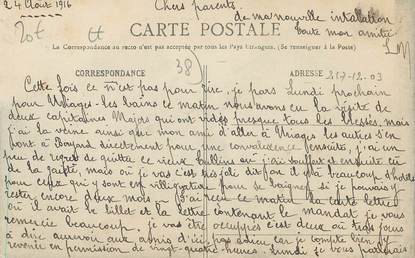 24 Août 1916
Chers parents.
de ma nouvelle
toute mon amitié
20f
CARTE POSTALE
La Correspondance au recto n'est pas acceptée par tous les Pays Etrangers. (Se renseigner à la Poste)
38
CORRESPONDANCE
ADRESSE 217-12.03
Cette fois ce n'est pas pour rire, je pars Lundi prochain
pour Uriages-les-bains ce matin nous avons eu la visite de
deux capitaines Majors qui ont vidés presque tous les blessés, mais
j'ai la veine ainsi que mon ami d'aller à Uriages les autres s'en
vont à directement pour une convalescence ensuite, j'ai un
peu de regret de quitter ce vieux où j'ai souffert et ensuite eu
de la gaîté, mais où je vas c'est dit-on il y a beaucoup d'hôtels
pour ceux qui y sont en villégiature pour se baigner si je pouvais y
rester encore deux mois J'ai reçu ce matin la carte lettre
où il avait le billet et la lettre contenant le mandat je vous
remercie beaucoup. je vas être occupé ces deux ou trois jours
à dire aurevoir aux amis d'ici pas adieu car je compte bien y
revenir en permission de vingt-quatre heures. Lundi je vous